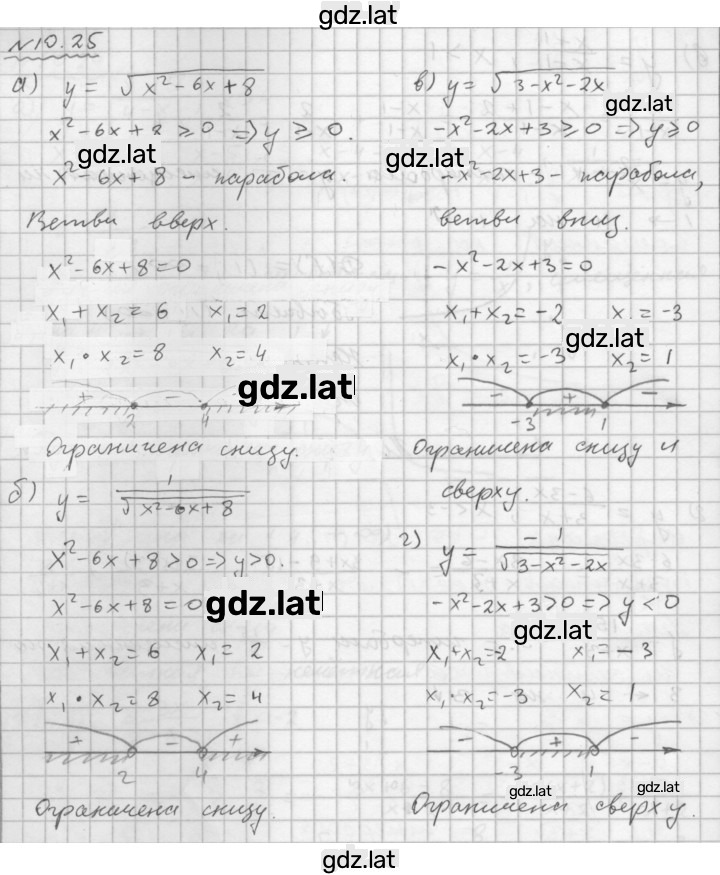 gdz.lat
№10.25
а) y = √(x² - 6x + 8)
x² - 6x + 8 ≥ 0 ⇒ y ≥ 0.
gdz.lat
x² - 6x + 8 - парабола.
Ветви вверх.
x² - 6x + 8 = 0
x₁ + x₂ = 6 x₁ = 2
x₁ · x₂ = 8 x₂ = 4
gdz.lat
+ - +
2 4
Ограничена снизу.
б) y = 1/√(x² - 6x + 8)
x² - 6x + 8 > 0 ⇒ y > 0.
x² - 6x + 8 = 0
gdz.lat
x₁ + x₂ = 6 x₁ = 2
x₁ · x₂ = 8 x₂ = 4
+ - +
2 4
Ограничена снизу.
в) y = √(3 - x² - 2x)
gdz.lat
-x² - 2x + 3 ≥ 0 ⇒ y ≥ 0
gdz.lat
-x² - 2x + 3 - парабола,
ветви вниз.
-x² - 2x + 3 = 0
x₁ + x₂ = -2 x. = -3
gdz.lat
x₁ · x₂ = -3 x₂ = 1
- + -
-3 1
Ограничена снизу и
сверху.
г) y = -1/√(3 - x² - 2x)
-x² - 2x + 3 > 0 ⇒ y < 0
gdz.lat
x₁ + x₂ = 2 x₁ = -3
x₁ · x₂ = -3 x₂ = 1
- + -
-3 1
gdz.lat
gdz.lat
Ограничена сверху.
gdz.lat